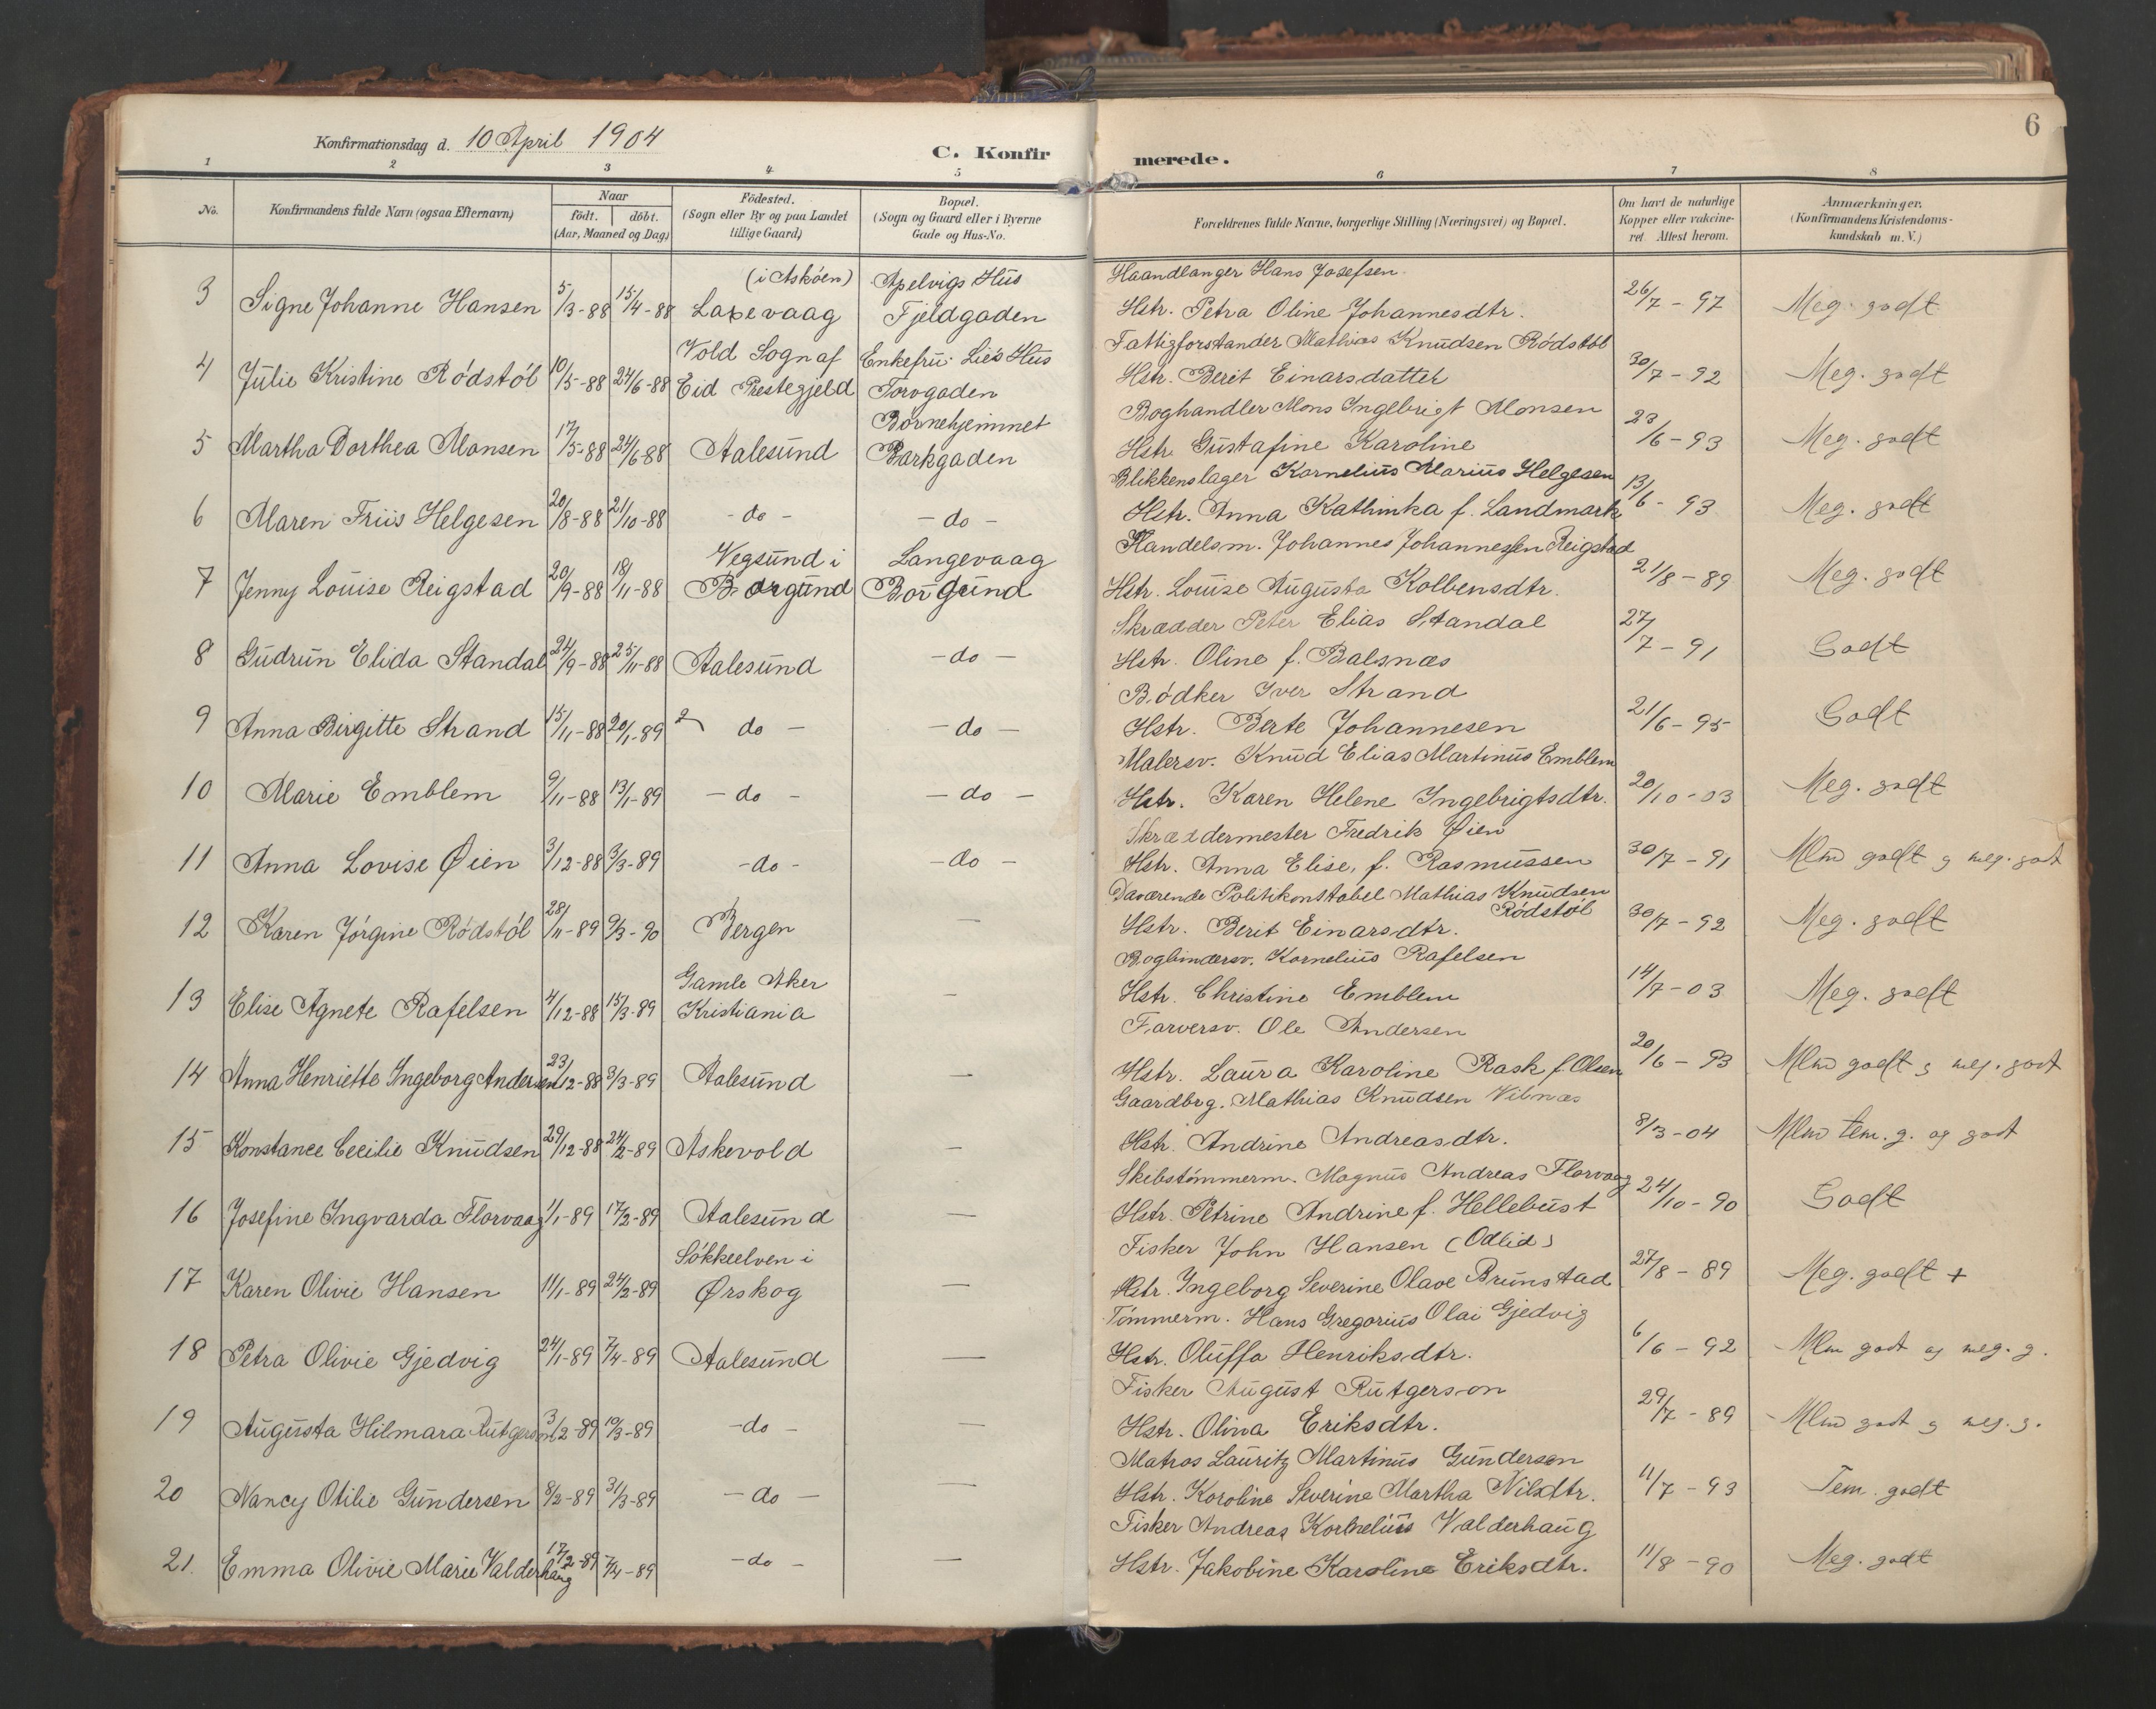 6
Konfirmationsdag d. 10 April 1904
C. Konfirmerede.
1 2 3 4 5 6 7 8
No. | Konfirmandens fulde Navn (ogsaa Efternavn) | Naar födt. | döbt. (Aar, Maaned og Dag) | Födested. (Sogn eller By og paa Landet tillige Gaard) | Bopæl. (Sogn og Gaard eller i Byerne Gade og Hus-No. | Forældrenes fulde Navne, borgerlige Stilling (Næringsvei) og Bopæl. | Om havt de naturlige Kopper eller vakcineret. Attest herom. | Anmærkninger. (Konfirmandens Kristendomskundskab m. V.)
3 Signe Johanne Hansen 5/3-88 15/4-88 (i Asköen) Laxevaag Apelvigs Hus Fjeldgaden Haandlanger Hans Josefsen Hstr. Petra Oline Johannesdtr. 26/7-97 Meg. godt
4 Julie Kristine Rödstöl 10/5-88 24/6-88 Vold Sogn af Eid Prestegjeld Enkefru Lies Hus Torvgaden Fattigforstander Mathias Knudsen Rödstöl Hstr. Berit Einarsdatter 30/7-92 Meg. godt
5 Martha Dorthea Monsen 17/5-88 24/6-88 Aalesund Börnehjemmet Parkgaden Boghandler Mons Ingebrigt Monsen Hstr. Gustafine Karoline 23/6-93 Meg. godt
6 Maren Friis Helgesen 20/8-88 21/10-88 - do - - do - Blikkenslager Kornelius Marius Helgesen Hstr. Anna Kathinka f. Landmark 13/6-93 Meg. godt
7 Jenny Louise Reigstad 20/9-88 18/11-88 Vegsund i Borgund Langevaag Borgund Handelsm. Johannes Johannessen Reigstad Hstr. Louise Augusta Kolbensdtr. 21/8-89 Meg. godt
8 Gudrun Elida Standal 24/9-88 25/11-88 Aalesund - do - Skrædder Peter Elias Standal Hstr. Oline f. Balsnæs 27/7-91 Godt
9 Anna Birgitte Strand 15/11-88 20/1-89 do - - do - Bödker Iver Strand Hstr. Berte Johannesen 21/6-95 Godt
10 Marie Emblem 9/11-88 13/1-89 - do - - do - Malersv. Knud Elias Martinus Emblem Hstr. Karen Helene Ingebrigtsdtr. 20/10-03 Meg. godt
11 Anna Lovise Øien 3/12-88 3/3-89 - do - - do - Skræddermester Fredrik Øien Hstr. Anna Elise, f. Rasmussen 30/7-91 Mlm godt og meg. godt
12 Karen Jörgine Rödstöl 28/11-89 9/3-90 Bergen — Daværende Politikonstabel Mathias Knudsen Rödstöl Hstr. Berit Einarsdtr. 30/7-92 Meg. godt
13 Elise Agnete Rafelsen 4/12-88 15/3-89 Gamle Aker Kristiania — Bogbindersv. Kornelius Rafelsen Hstr. Christine Emblem 14/7-03 Meg. godt
14 Anna Henriette Ingeborg Andersen 23/12-88 3/3-89 Aalesund — Farversv. Ole Andersen Hstr. Laura Karoline Rask f. Olsen 20/6-93 Mlm godt og meg. godt
15 Konstance Cecilie Knudsen 29/12-88 24/2-89 Askevold — Gaardbrg. Mathias Knudsen Vilnæs Hstr. Andrine Andreasdtr. 8/3-04 Mlm tem. g. og godt
16 Josefine Ingvarda Florvaag 1/1-89 17/2-89 Aalesund — Skibstömmerm. Magnus Andreas Florvaag Hstr. Petrine Andrine f. Hellebust 24/10-90 Godt
17 Karen Olivie Hansen 11/1-89 24/2-89 Sökkelven i Ørskog — Fisker John Hansen (Odlid) Hstr. Ingeborg Severine Olave Brunstad 27/8-89 Meg. godt +
18 Petra Olivie Gjedvig 24/1-89 7/4-89 Aalesund — Tömmerm. Hans Gregorius Olai Gjedvig Hstr. Oluffa Henriksdtr. 6/6-92 Mlm godt og meg. g.
19 Augusta Hilmara Rutgerson 3/2-89 10/3-89 - do - — Fisker August Rutgerson Hstr. Olina Eriksdtr. 29/7-89 Mlm godt og meg. g.
20 Nancy Otilie Gundersen 8/2-89 31/3-89 - do - — Matros Lauritz Martinus Gundersen Hstr. Karoline Severine Martha Nilsdtr. 11/7-93 Tem. godt
21. Emma Olivie Marie Valderhaug 17/2-89 7/4-89 - do - — Fisker Andreas Kornelius Valderhaug Hstr. Jakobine Karoline Eriksdtr. 11/8-90 Meg. godt